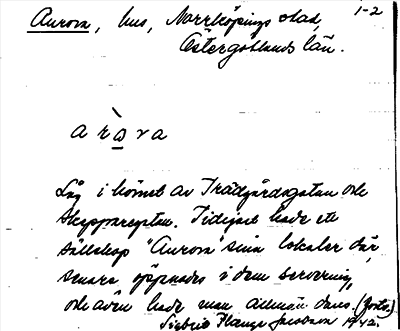 1-2
Aurora, hus, Norrköpings stad,
Östergötlands län.
arὰva
Låg i hörnet av Trädgårdsgatan och
Skepparegatan. Tidigare hade ett
sällskap "Aurora" sina lokaler där,
senare öppnades i dem servering,
och även hade man allmän dans. (Forts.)
Jacobson 1942.